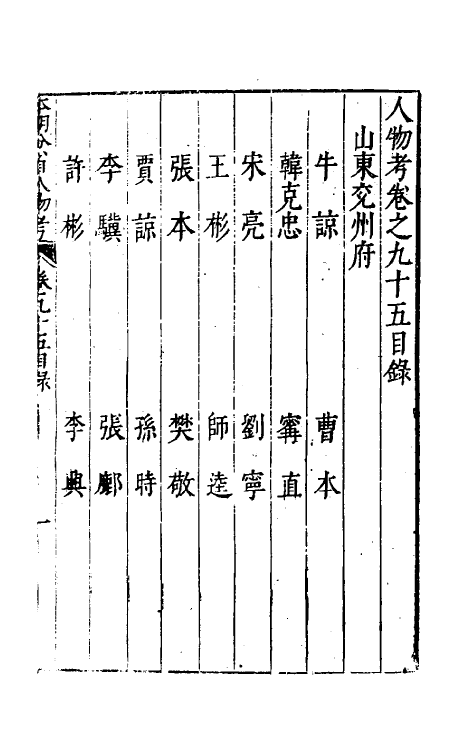 人物考卷之九十五目錄
山東兗州府
牛諒 曹本
韓克忠 甯直
宋亮 劉寧
王彬 師逵
張本 樊敬
賈諒 孫時
李驥 張鄺
許彬 李典
本朝分省人物考 卷九十五目錄 一